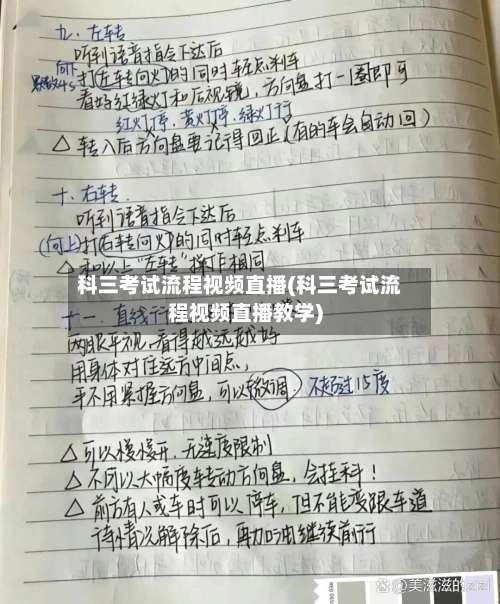 九、左转
听到语音指令下达后
向下
打左转向灯的同时轻点刹车
看好红绿灯和后视镜,方向盘打一圈即可
红灯停,黄灯停,绿灯行
△ 转入后方向盘要记得回正(有的车会自动回)
十、右转
听到语音指令下达后
(向上)打右转向灯的同时轻点刹车
△ 和以上“左转”操作相同
科三考试流程视频直播(科三考试流
程视频直播教学)
十一、直线行
两眼平视,看得越远越好
用身体对住远方中间点,
手不用紧握方向盘,可以微调,不超过15度
△ 可以慢慢开,无速度限制
△ 不可以大幅度转动方向盘,会挂科!
△ 前方有人或车时可以停车,但不能变限车道
待情况解除后,再加油继续前行
美滋滋的